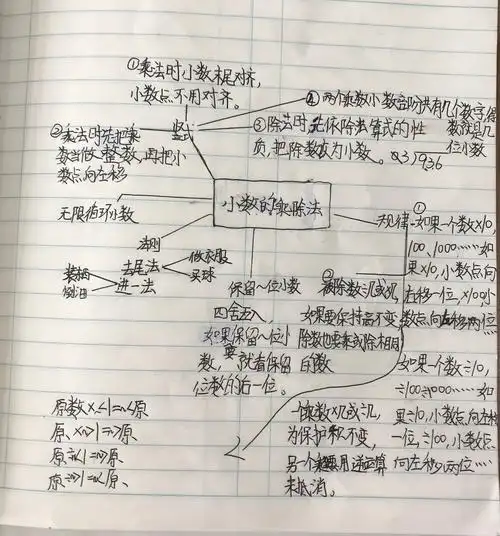 ①乘法时小数末尾对齐,
小数点不用对齐。
竖式
②乘法时先把乘
数当做整数,再把小
数点向左移
④两个乘数小数部分共有几个数字,
数就是几
位小数
③除法时,先依除法算式的性
质,把除数变为小数。0.3√9.36
小数的乘除法
无限循环小数
法则
去尾法
做衣服
买球
进一法
装桶
倒油
保留~位小数
四舍五入
如果保留~位小
数,要就看保留的数
位数的后一位。
规律
①
如果一个数×10,
100、1000……如
果×10,小数点向
右移一位,×100小
数点向右移两位
如果一个数÷10,
÷100÷1000……如
果÷10,小数点向左移
一位,÷100,小数点
向左移两位……
②被除数×几或÷几,
如果要保持商不变,
除数也要乘或除相同
一个乘数×几或÷几,
为保护积不变,
另一个乘数要用逆运算
来抵消。
原数×<1=<原
原、×>1=>原
原÷<1=>原
原÷>1=<原、